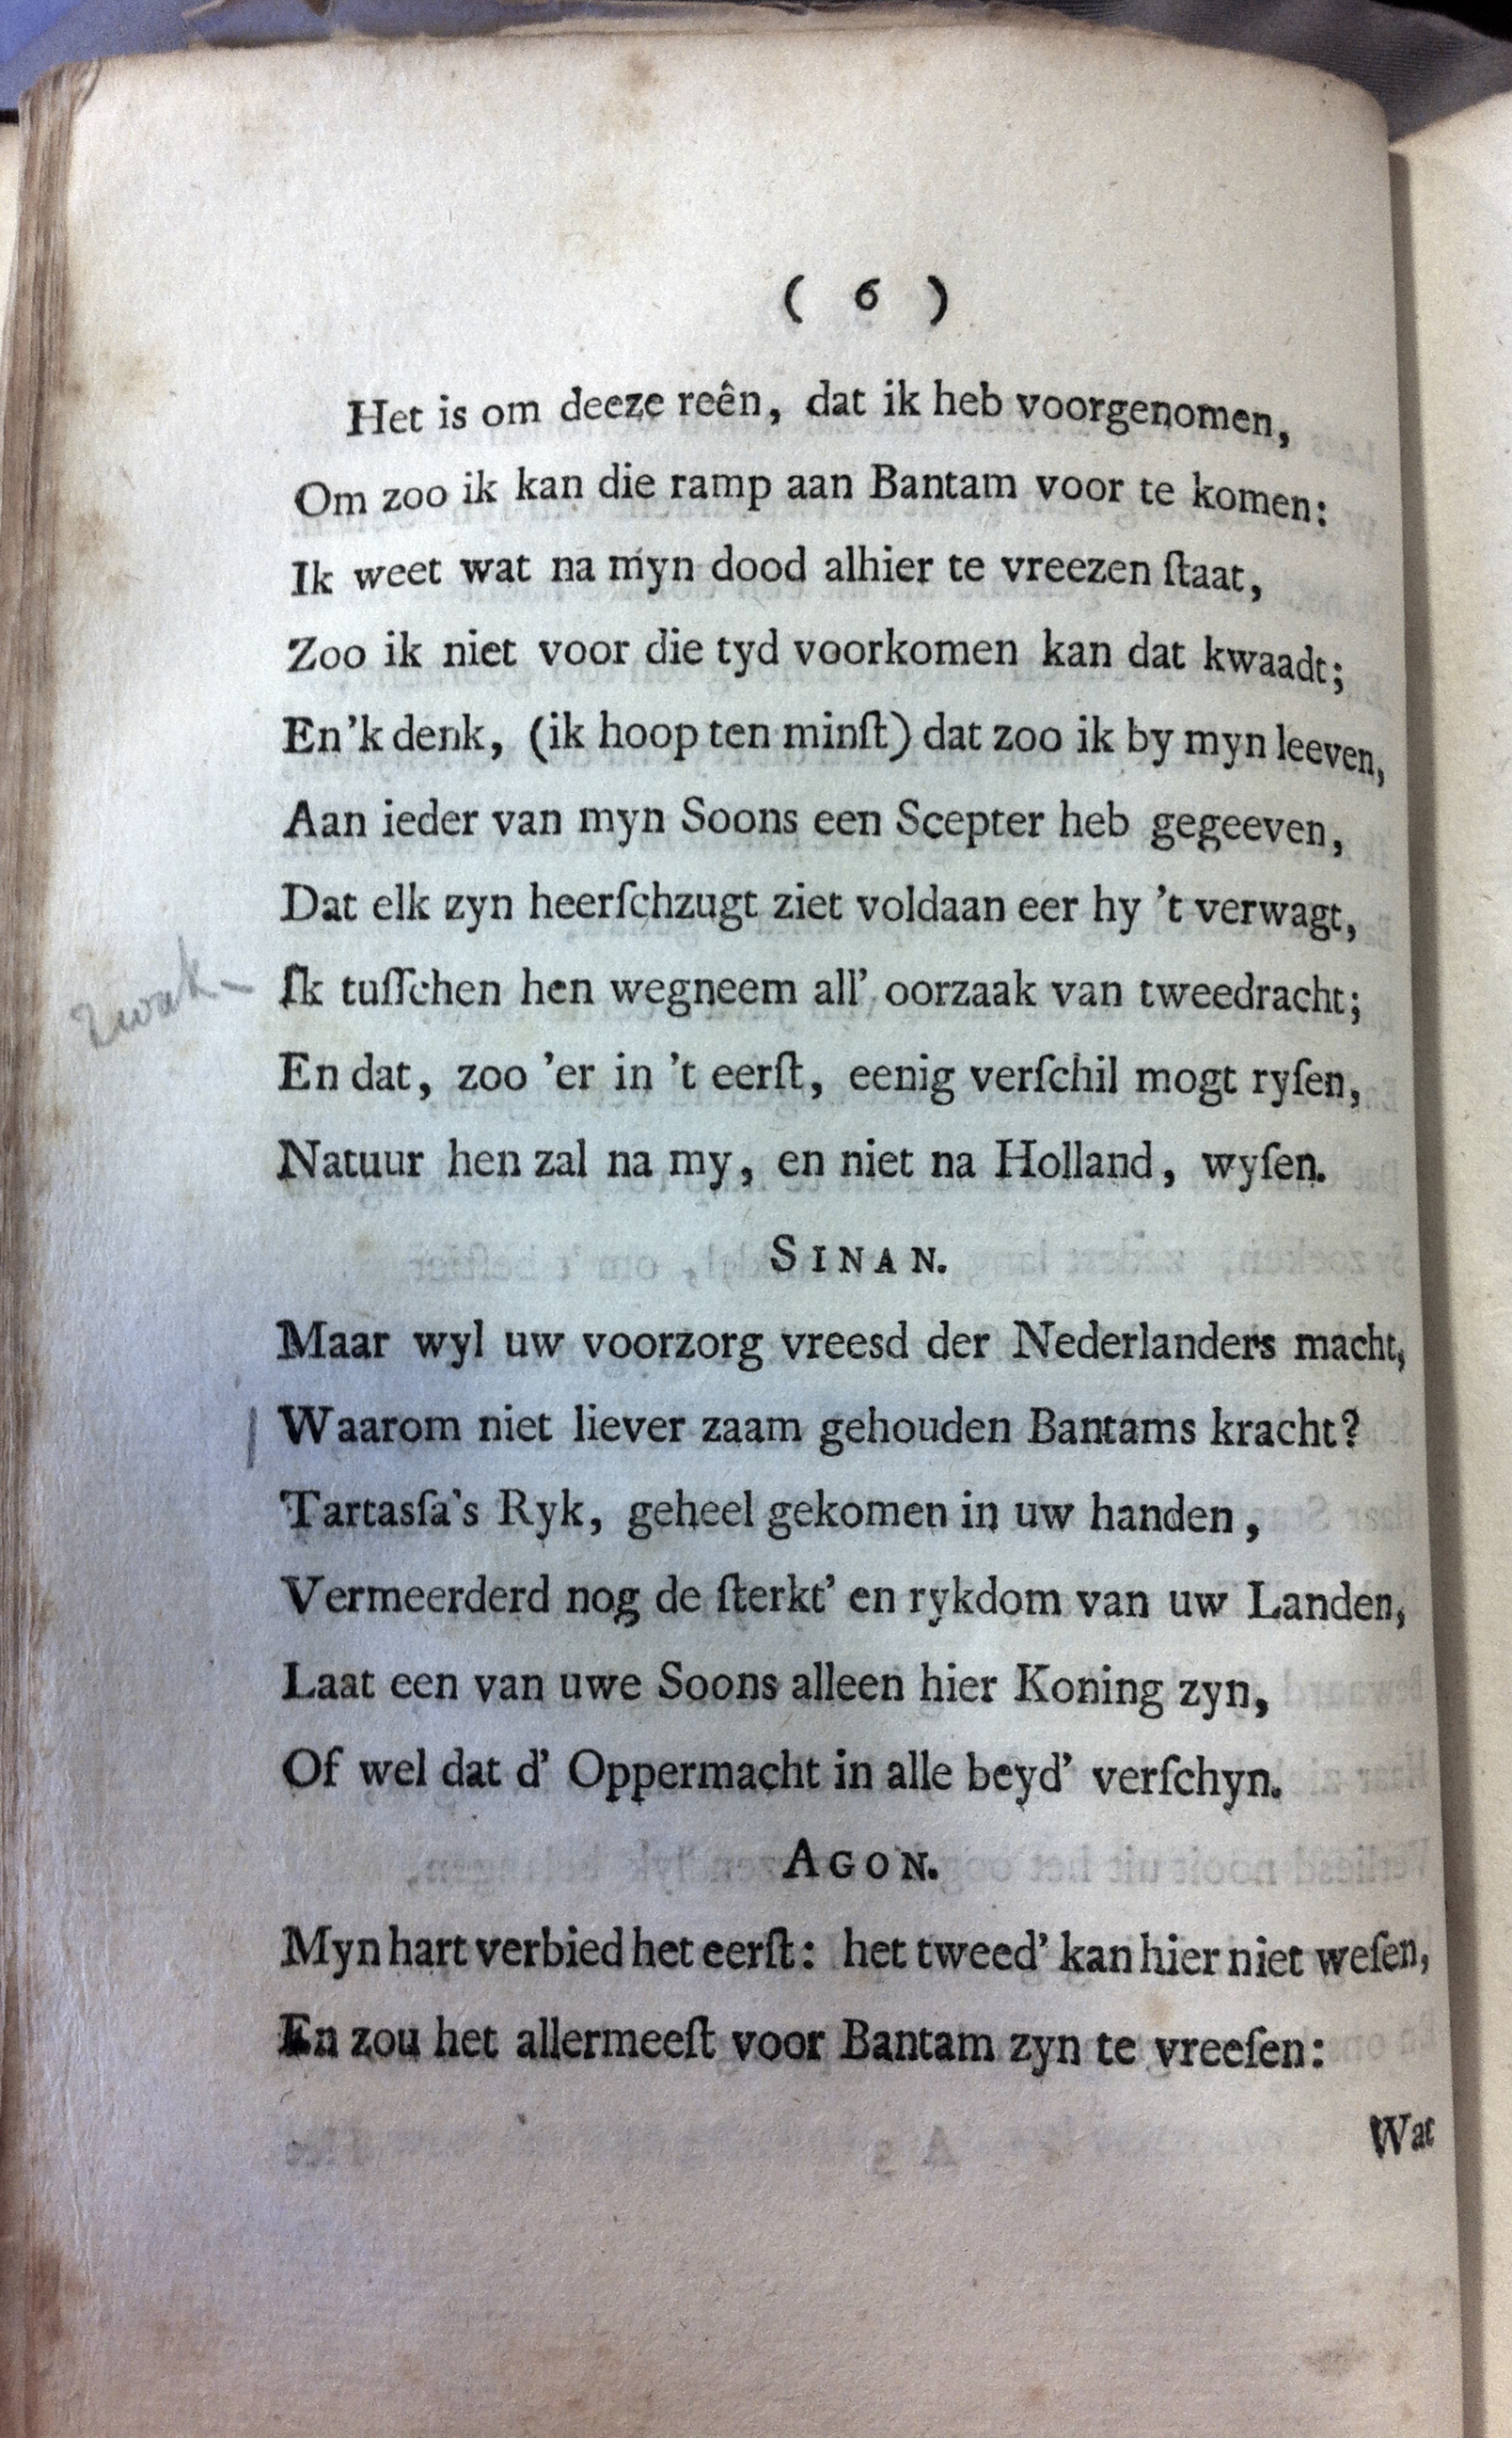 ( 6 )
Het is om deeze reên, dat ik heb voorgenomen,
Om zoo ik kan die ramp aan Bantam voor te komen:
Ik weet wat na myn dood alhier te vreezen ſtaat,
Zoo ik niet voor die tyd voorkomen kan dat kwaadt;
En'k denk, (ik hoop ten minſt) dat zoo ik by myn leeven,
Aan ieder van myn Soons een Scepter heb gegeeven,
Dat elk zyn heerſchzugt ziet voldaan eer hy 't verwagt,
zwak - Ik tuſſchen hen wegneem all' oorzaak van tweedracht;
En dat, zoo 'er in 't eerſt, eenig verſchil mogt ryſen,
Natuur hen zal na my, en niet na Holland, wyſen.
SINAN.
Maar wyl uw voorzorg vreesd der Nederlanders macht,
Waarom niet liever zaam gehouden Bantams kracht?
Tartasſa's Ryk, geheel gekomen in uw handen,
Vermeerderd nog de ſterkt' en rykdom van uw Landen,
Laat een van uwe Soons alleen hier Koning zyn,
Of wel dat d' Oppermacht in alle beyd' verſchyn.
AGON.
Myn hart verbied het eerſt: het tweed' kan hier niet weſen,
En zou het allermeeſt voor Bantam zyn te vreeſen:
Wat